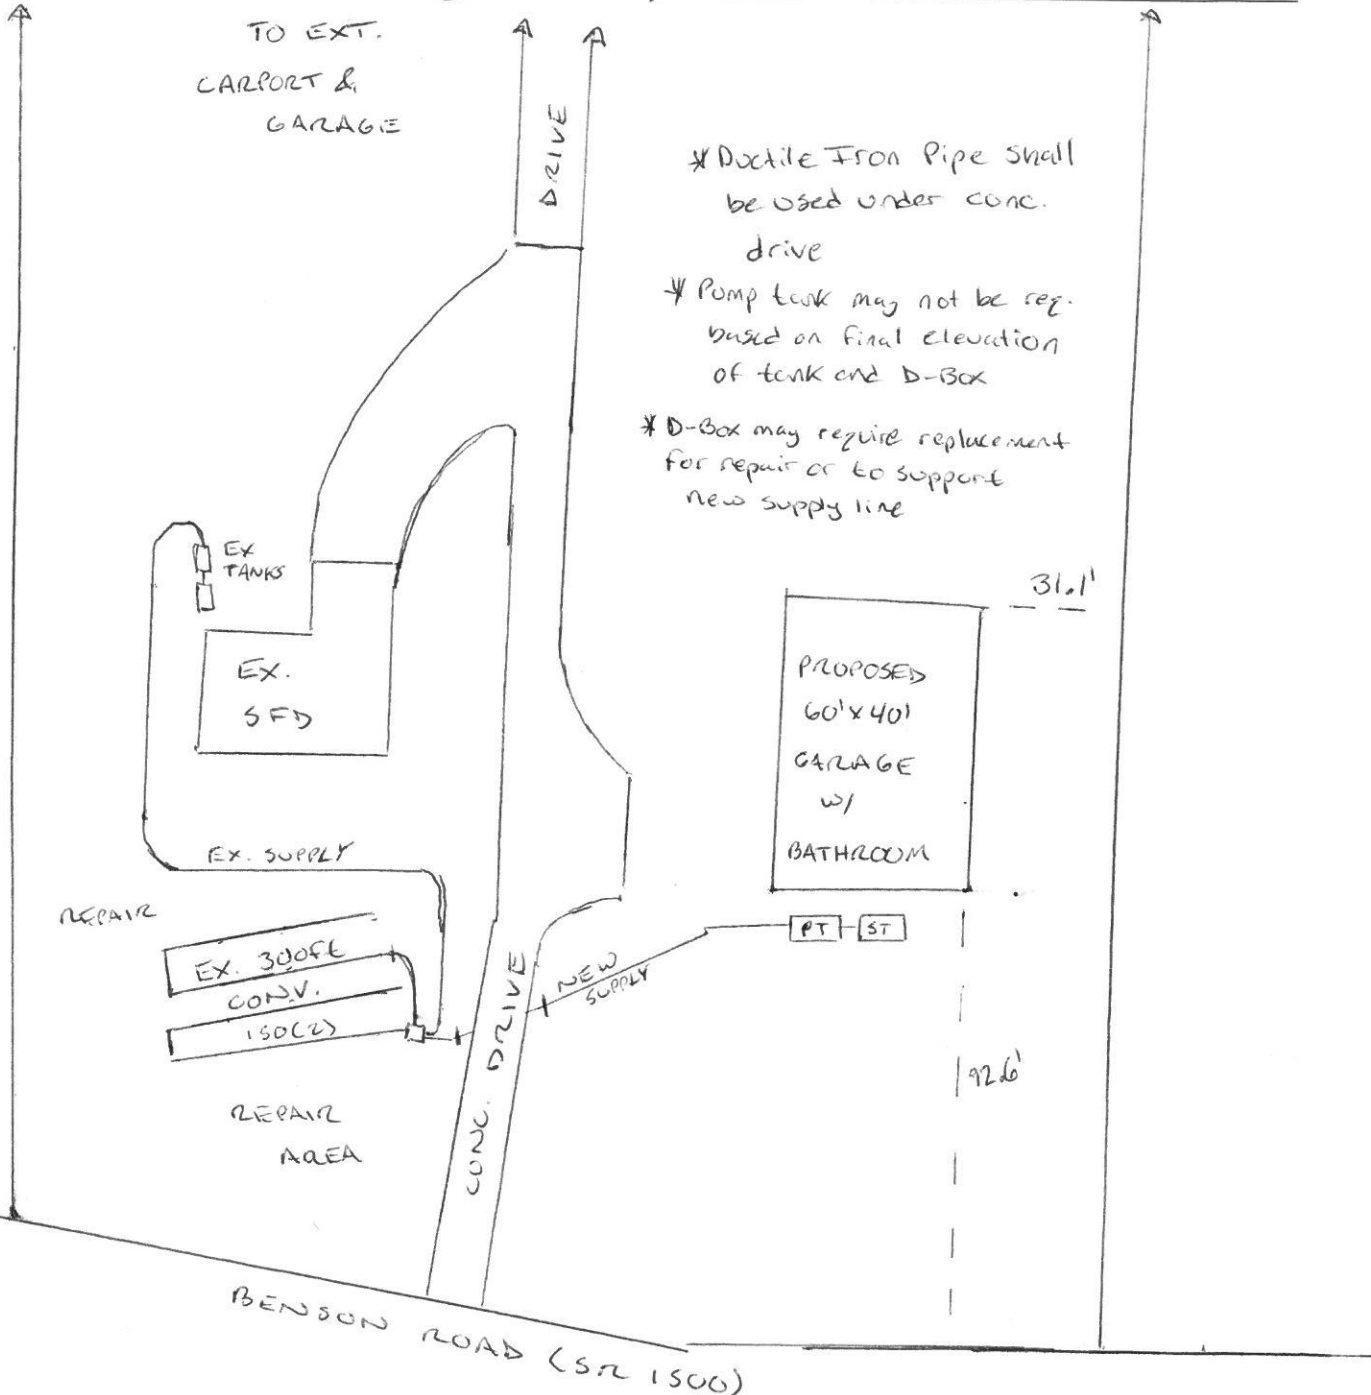 TO EXT.
CARPORT &
GARAGE
DRIVE
* Ductile Iron Pipe shall
be used under conc.
drive
* Pump tank may not be req.
based on final elevation
of tank and D-Box
* D-Box may require replacement
for repair or to support
new supply line
EX
TANKS
31.1'
EX.
SFD
PROPOSED
60'x40'
GARAGE
W/
BATHROOM
EX. SUPPLY
REPAIR
EX. 300ft
CONV.
150(2)
PT
ST
NEW
SUPPLY
CONC. DRIVE
92.6'
REPAIR
AREA
BENSON ROAD (SR 1500)